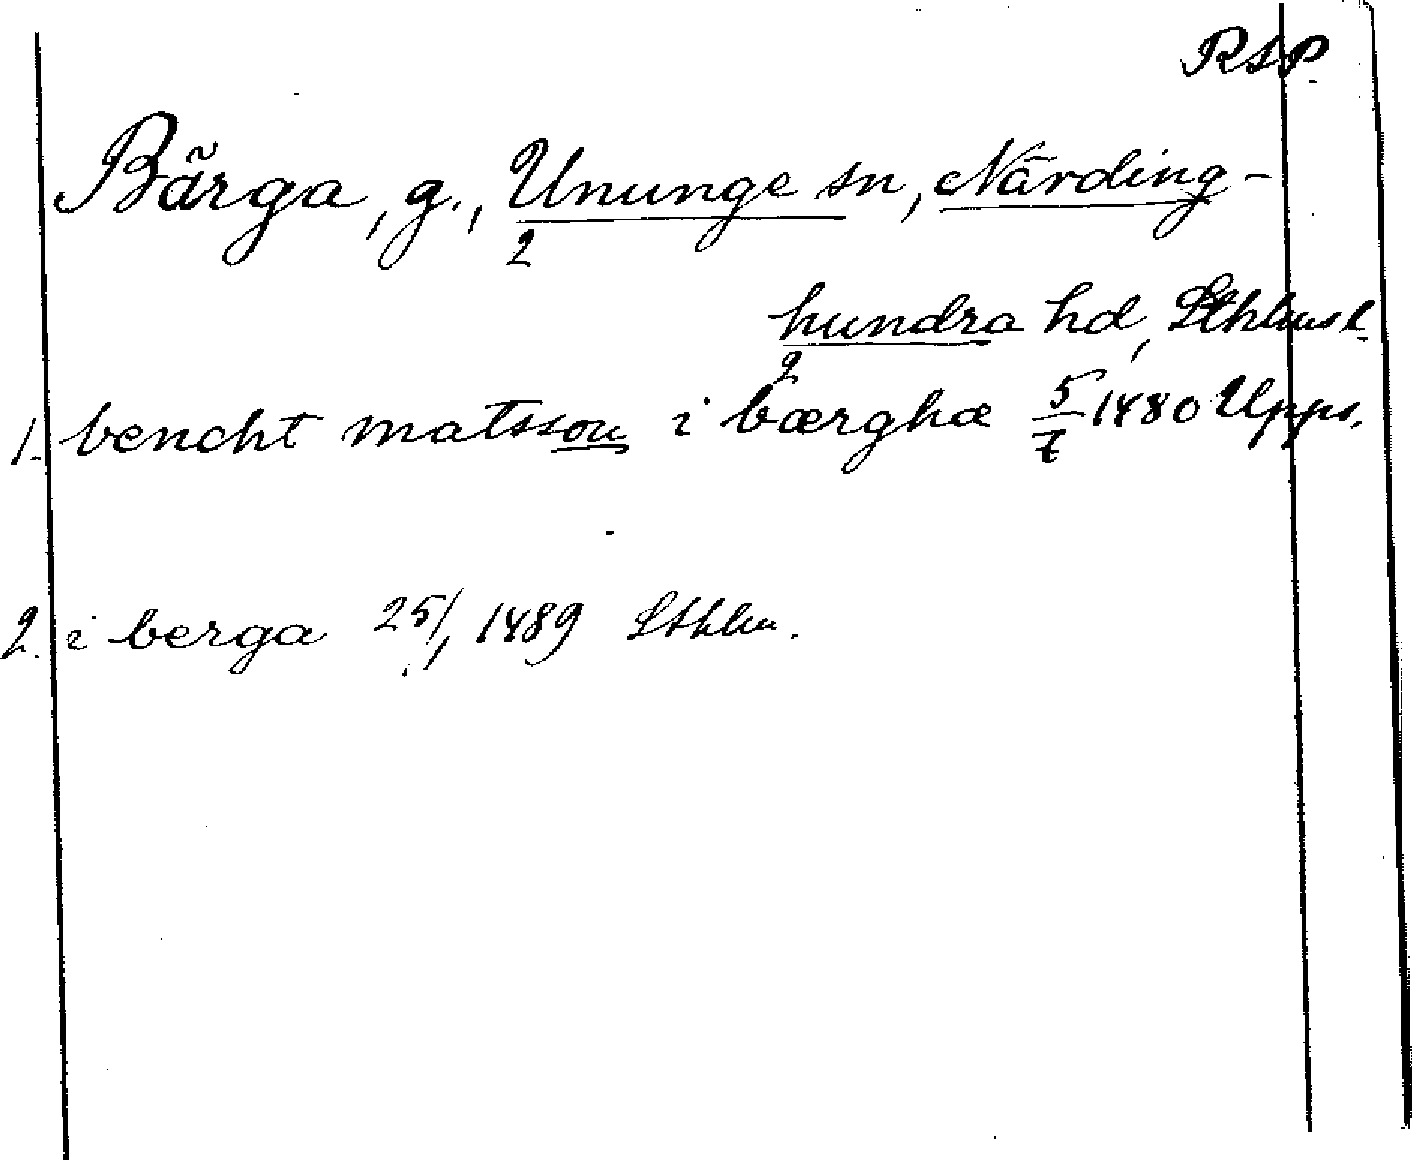 RAP
Bärga, g., Ununge sn, Närding-
2
hundra hd, Sthlms l.
2
1. bencht matsson i bærghæ 5/7 1480 Upps.
2. i berga 25/1 1489 Sthlm.